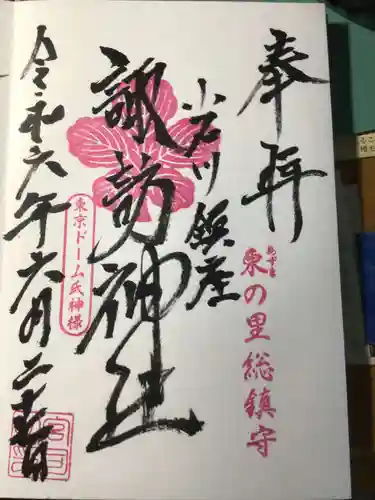 奉拝
あずま
東の里総鎮守
小石川鎮座
諏訪神社
東京ドーム氏神様
令和六年六月二十七日